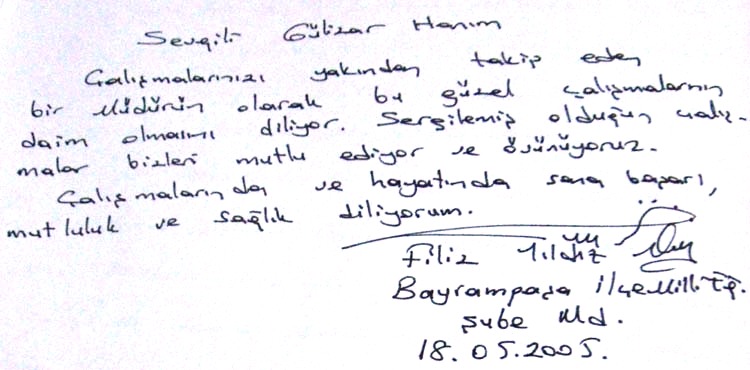 Sevgili Gülizar Hanım
Çalışmalarınızı yakından takip eden
bir Müdürün olarak bu güzel çalışmalarının
daim olmasını diliyor. Sergilemiş olduğun çalış-
malar bizleri mutlu ediyor ve övünüyoruz.
Çalışmalarında ve hayatında sana başarı,
mutluluk ve sağlık diliyorum.
Filiz Yıldız
Bayrampaşa İlçe Milli Eğ.
Şube Md.
18.05.2005.